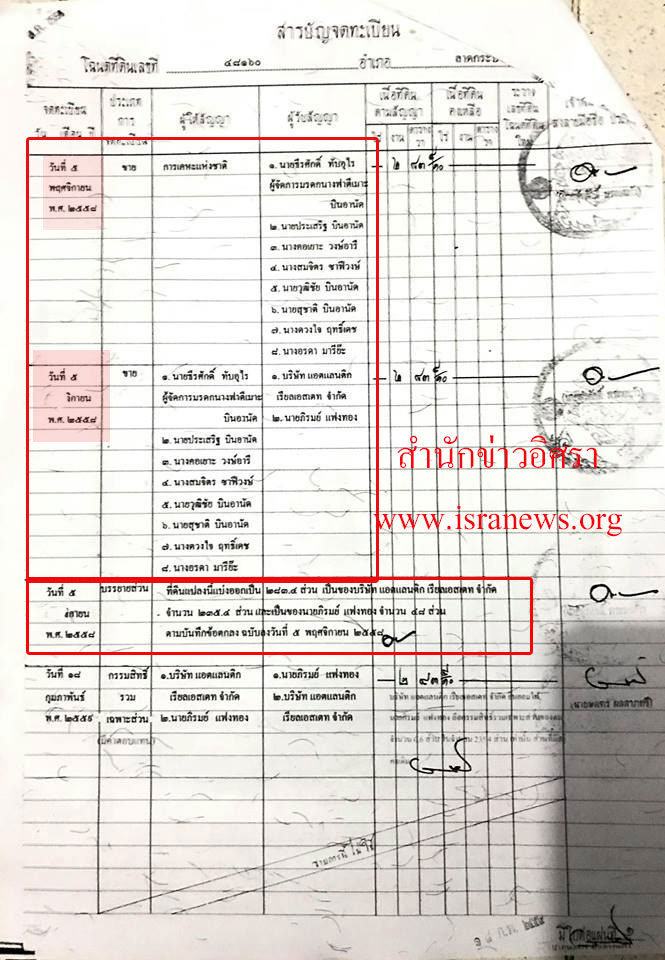 สารบัญจดทะเบียน
โฉนดที่ดินเลขที่ ๔๘๑๖๐ อำเภอ ลาดกระบัง
จดทะเบียน วัน เดือน ปี
ประเภทการจดทะเบียน
ผู้ให้สัญญา
ผู้รับสัญญา
เนื้อที่ดินตามสัญญา
ไร่ งาน ตารางวา
เนื้อที่ดินคงเหลือ
ไร่ งาน ตารางวา
ระวาง เลขที่ดิน โฉนดที่ดินใหม่
วันที่ ๕ ขาย การเคหะแห่งชาติ ๑. นายธีรศักดิ์ ทับอุไร
พฤศจิกายน ผู้จัดการมรดกนางฟาตีเมาะ
พ.ศ. ๒๕๕๘ บินอานัด
๒. นายประเสริฐ บินอานัด
๓. นางคอเยาะ วงษ์อารี
๔. นางสมจิตร ซาฟีวงษ์
๕. นายวุฒิชัย บินอานัด
๖. นายสุชาติ บินอานัด
๗. นางดวงใจ ฤทธิ์เดช
๘. นางอรดา มารีย๊ะ
วันที่ ๕ ขาย ๑. นายธีรศักดิ์ ทับอุไร ๑. บริษัท แอตแลนติก
จิกายน ผู้จัดการมรดกนางฟาตีเมาะ เรียลเอสเตท จำกัด
พ.ศ. ๒๕๕๘ บินอานัด ๒. นายภิรมย์ แฟงทอง
๒. นายประเสริฐ บินอานัด
๓. นางคอเยาะ วงษ์อารี
๔. นางสมจิตร ซาฟีวงษ์
๕. นายวุฒิชัย บินอานัด
๖. นายสุชาติ บินอานัด
๗. นางดวงใจ ฤทธิ์เดช
๘. นางอรดา มารีย๊ะ
สำนักข่าวอิศรา
www.isranews.org
วันที่ ๕ บรรยายส่วน ที่ดินแปลงนี้แบ่งออกเป็น ๒๘๓.๔ ส่วน เป็นของบริษัท แอตแลนติก เรียลเอสเตท จำกัด
จำนวน ๒๓๕.๔ ส่วน และเป็นของนายภิรมย์ แฟงทอง จำนวน ๔๘ ส่วน
พ.ศ. ๒๕๕๘ ตามบันทึกข้อตกลง ฉบับลงวันที่ ๕ พฤศจิกายน ๒๕๕๘
วันที่ ๑๘ กรรมสิทธิ์ ๑.บริษัท แอตแลนติก ๑.นายภิรมย์ แฟงทอง
กุมภาพันธ์ รวม เรียลเอสเตท จำกัด ๒.บริษัท แอตแลนติก
พ.ศ. ๒๕๕๙ เฉพาะส่วน ๒.นายภิรมย์ แฟงทอง เรียลเอสเตท จำกัด
(มีค่าตอบแทน)
บริษัท แอตแลนติก เรียลเอสเตท จำกัด
นายภิรมย์ แฟงทอง ถือกรรมสิทธิ์รวมเฉพาะส่วนของตน
รายการนี้ ไม่ใช้
มีใบต่อแผ่นที่